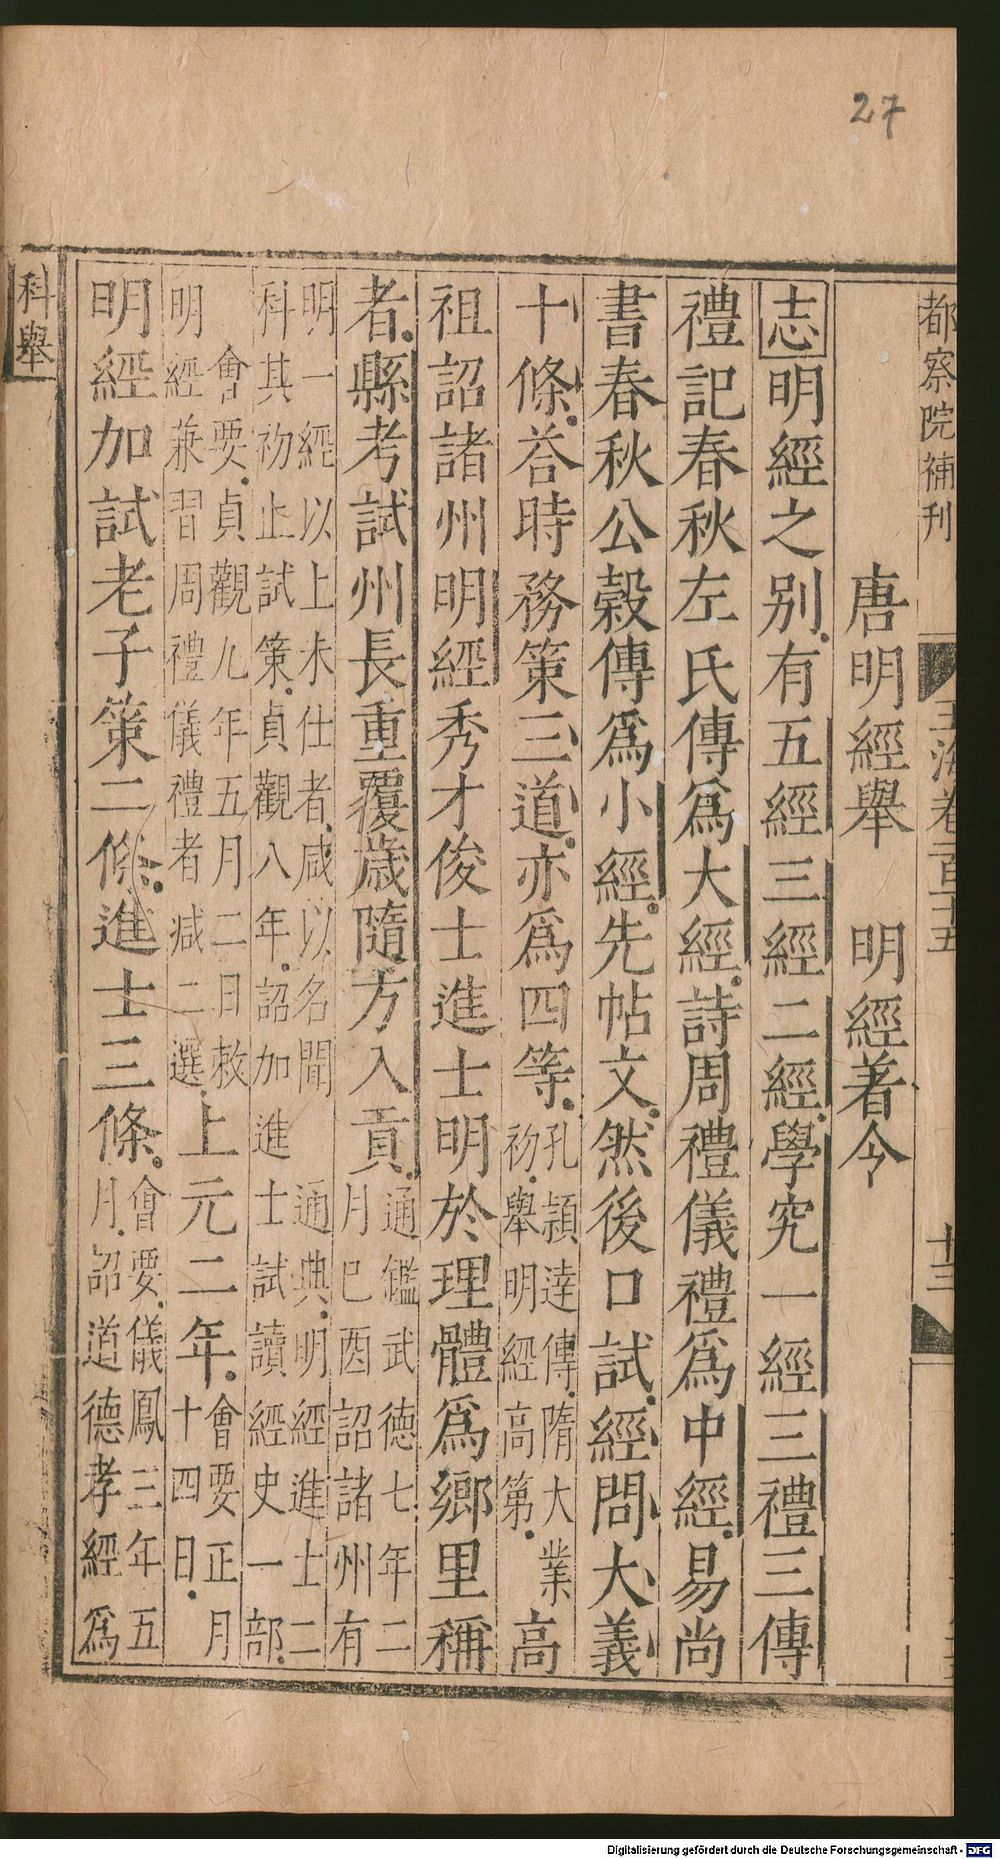 27
都察院補刊
玉海卷百十五
十三
唐明經舉　明經著令
志明經之别有五經三經二經學究一經三禮三傳
禮記春秋左氏傳爲大經詩周禮儀禮爲中經易尚
書春秋公穀傳爲小經先帖文然後口試經問大義
十條荅時務策三道亦爲四等孔頴達傳隋大業
初舉明經高第高
祖詔諸州明經秀才俊士進士明於理體爲鄉里稱
者縣考試州長重覆歲隨方入貢通鑑武德七年二
月己酉詔諸州有
明一經以上未仕者咸以名聞　通典明經進士二
科其初止試策貞觀八年詔加進士試讀經史一部
會要貞觀九年五月二日敕
明經兼習周禮儀禮者減二選上元二年會要正月
十四日
明經加試老子策二條進士三條會要儀鳳三年五
月詔道德孝經爲
科舉
Digitalisierung gefördert durch die Deutsche Forschungsgemeinschaft - DFG